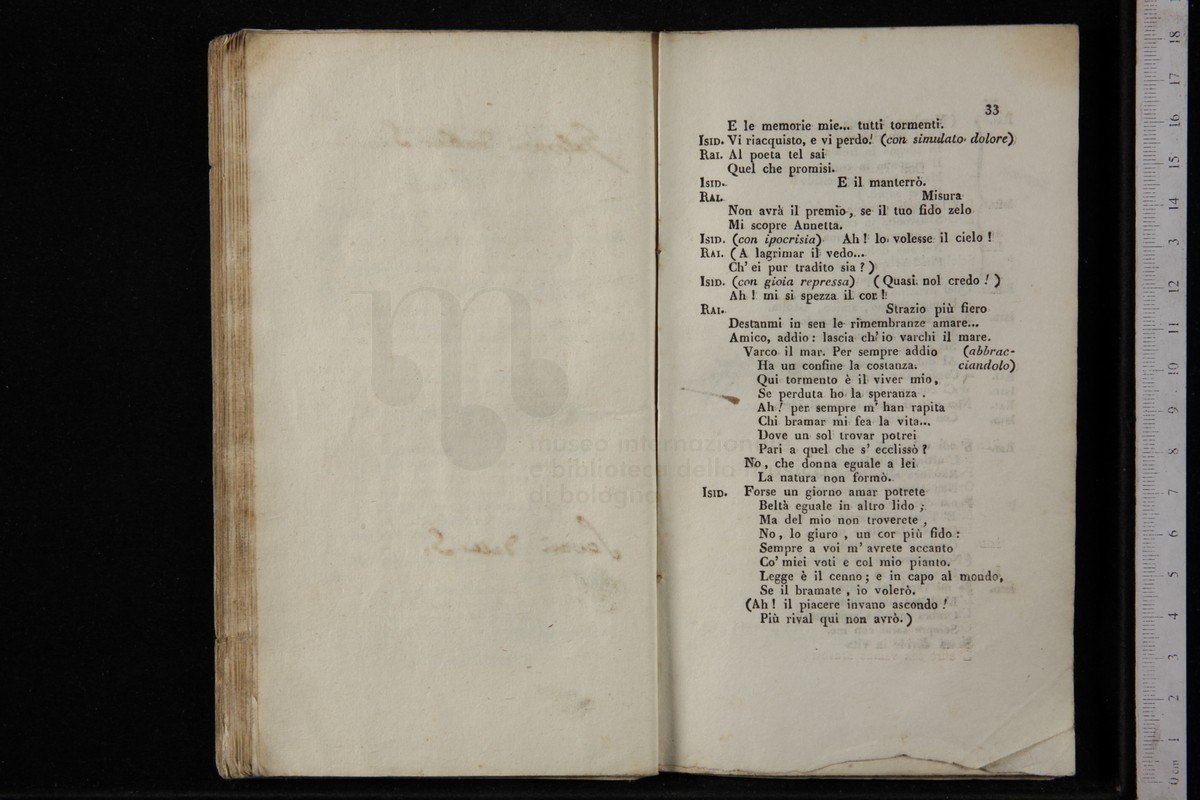 33
E le memorie mie... tutti tormenti.
ISID. Vi riacquisto, e vi perdo! (con simulato dolore)
RAI. Al poeta tel sai
Quel che promisi.
ISID. E il manterrò.
RAI. Misura
Non avrà il premio, se il tuo fido zelo
Mi scopre Annetta.
ISID. (con ipocrisia) Ah! lo volesse il cielo!
RAI. (A lagrimar il vedo...
Ch' ei pur tradito sia?)
ISID. (con gioia repressa) (Quasi nol credo!)
Ah! mi si spezza il cor!
RAI. Strazio più fiero
Destanmi in sen le rimembranze amare...
Amico, addio: lascia ch' io varchi il mare.
Varco il mar. Per sempre addio (abbrac-
Ha un confine la costanza. ciandolo)
Qui tormento è il viver mio,
Se perduta ho la speranza.
Ah! per sempre m' han rapita
Chi bramar mi fea la vita...
Dove un sol trovar potrei
Pari a quel che s' ecclissò?
No, che donna eguale a lei
La natura non formò.
ISID. Forse un giorno amar potrete
Beltà eguale in altro lido;
Ma del mio non troverete,
No, lo giuro, un cor più fido:
Sempre a voi m' avrete accanto
Co' miei voti e col mio pianto.
Legge è il cenno; e in capo al mondo,
Se il bramate, io volerò.
(Ah! il piacere invano ascondo!
Più rival qui non avrò.)
museo internazion
e biblioteca della
di bologna
0 cm 1 2 3 4 5 6 7 8 9 10 11 12 13 14 15 16 17 18